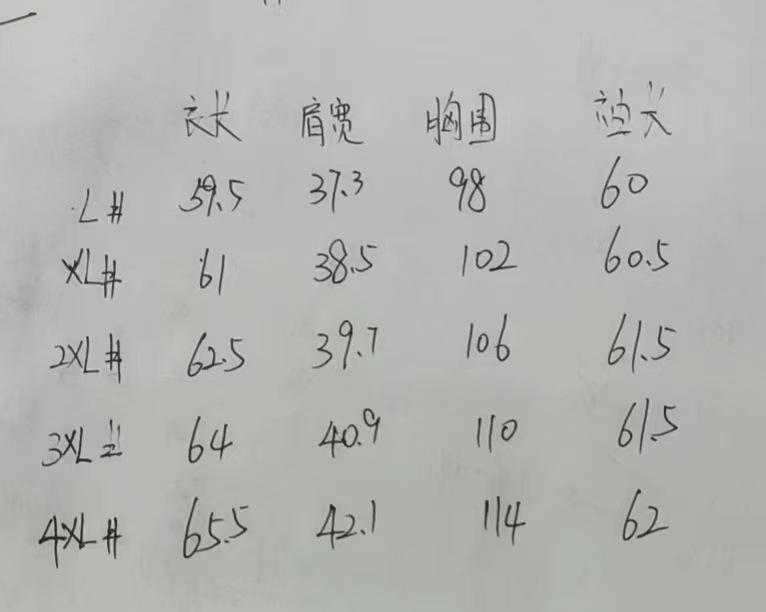 衣长 肩宽 胸围 袖长
L# 59.5 37.3 98 60
XL# 61 38.5 102 60.5
2XL# 62.5 39.7 106 61.5
3XL# 64 40.9 110 61.5
4XL# 65.5 42.1 114 62